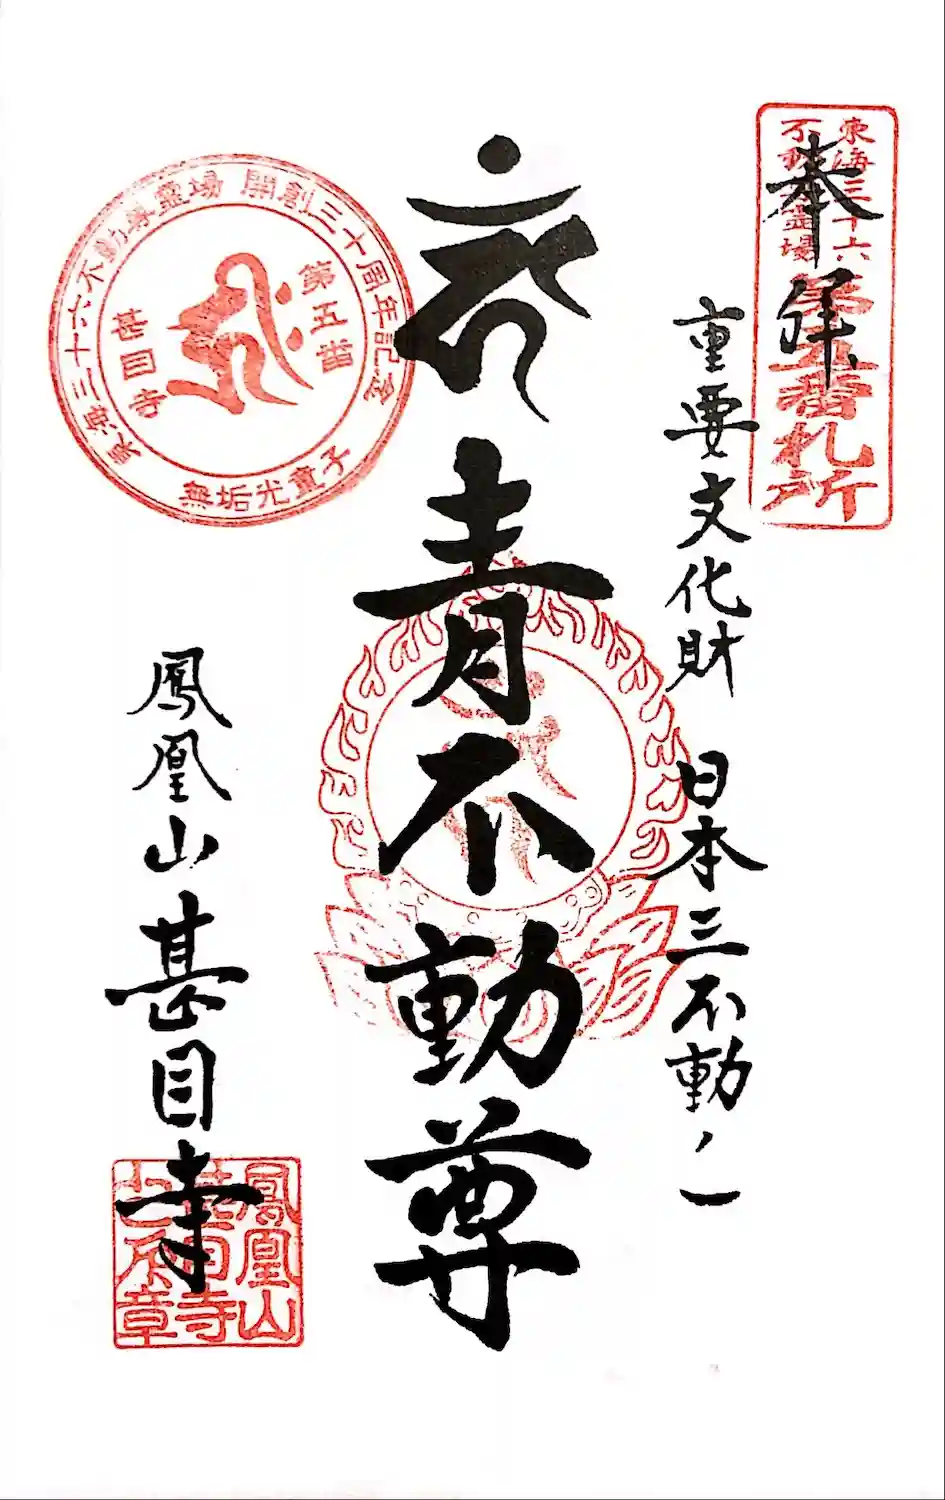 東海三十六
不動尊霊場
第五番札所
奉拝
重要文化財 日本三不動ノ一
青不動尊
鳳凰山甚目寺
東海三十六不動尊霊場 開創三十周年記念
第五番
甚目寺
無垢光童子
鳳凰山
甚目寺